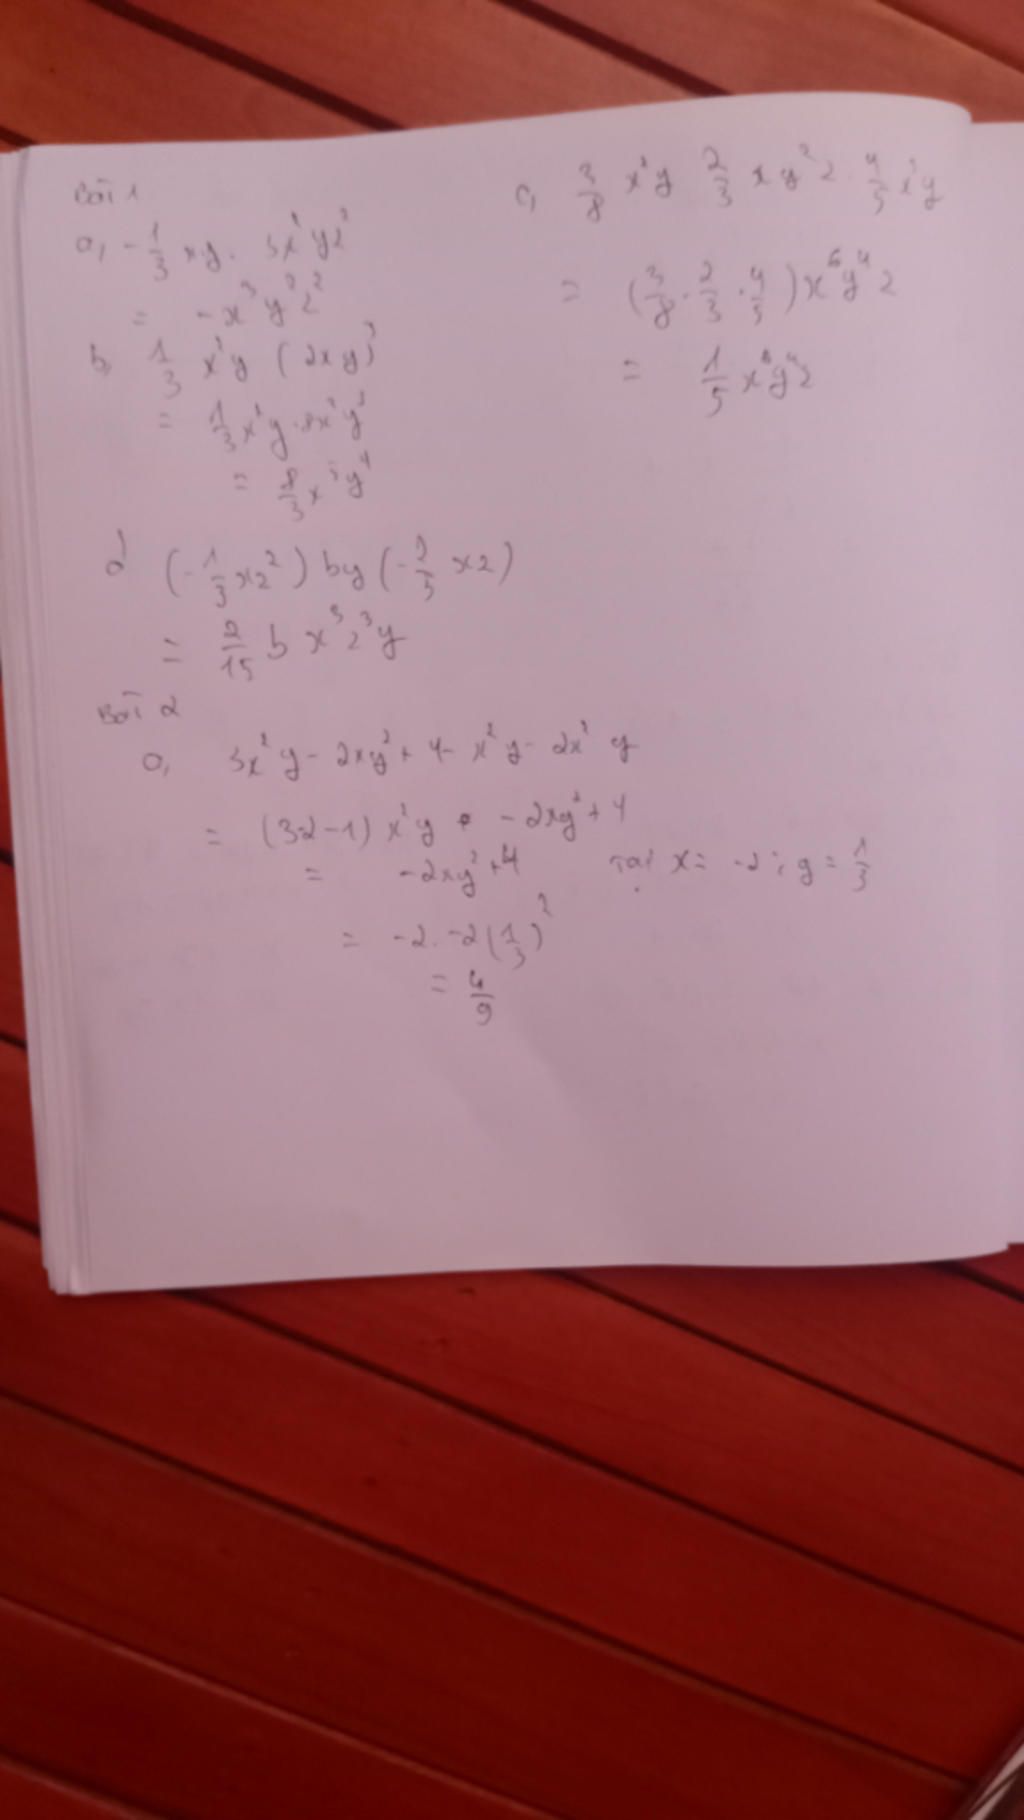 Bài 1
a, -1/3 xy. 3x²yz²
= -x³y²z²
b, 1/3 x²y (2xy)³
= 1/3 x²y.8x³y³
= 8/3 x⁵y⁴
c, 3/8 x²y 2/3 xy²z. 4/5 x³y
= (3/8 . 2/3 . 4/5) x⁶y⁴z
= 1/5 x⁶y⁴z
d (-1/3 xz²) by (-2/5 xz)
= 2/15 b x³z³y
Bài 2
a, 3x²y - 2xy² + 4 - x²y - 2x² y
= (3-2-1) x²y - 2xy² + 4
= -2xy² + 4 Tại x = -2 ; y = 1/3
= -2. -2 (1/3)²
= 4/9